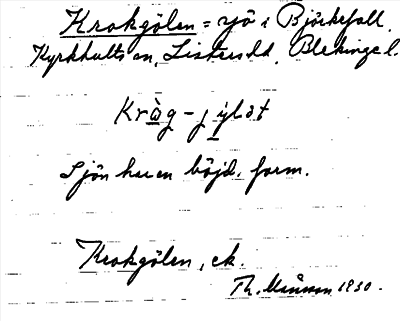 Krokgölen = sjö i Björkefall,
Kyrkhults sn, Listers hd, Blekinge l.
Kròg-jylat
Sjön har en böjd form.
Krokgölen, ek.
Th. 1930.